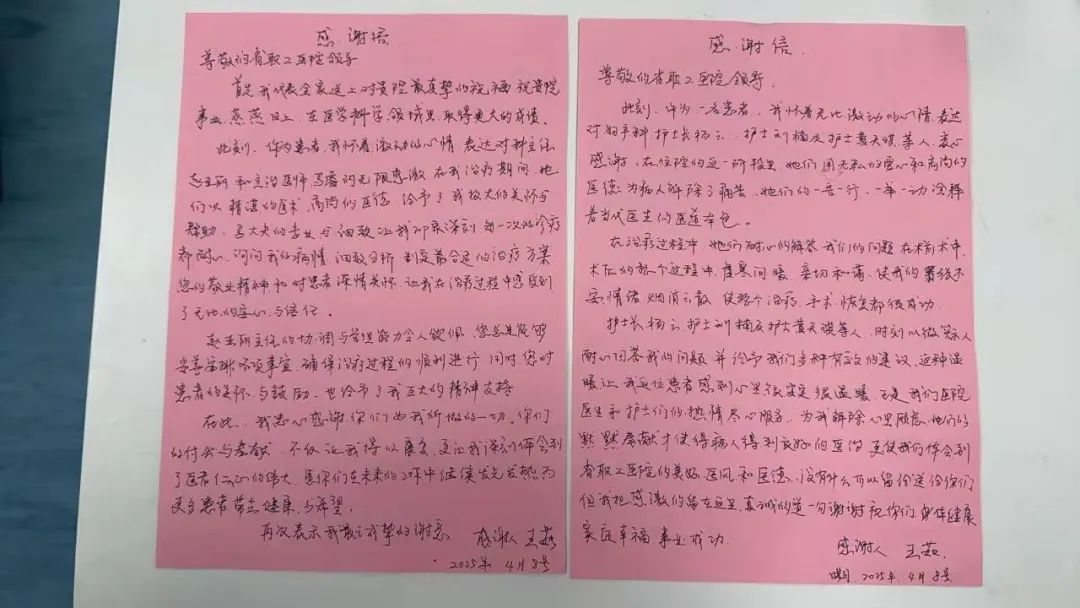 感谢信
尊敬的省职工医院领导
首先我代表全家送上对贵院最真挚的祝福 祝贵院
事业蒸蒸日上、在医学科学领域里取得更大的成绩。
此刻、作为患者,我怀着激动的心情 表达对科主任
赵亚丽和主治医师马 的无限感激 在我治疗期间 她
们以精湛的医术、高尚的医德 给予了我极大的关怀与
帮助、马大夫的专业与细致让我印象深刻 每一次的诊疗
都耐心、询问我的病情 细致分析 制定最合适的治疗方案
您的敬业精神和对患者深情关怀、让我在治疗过程中感受到
了无比的安心与信任。
赵亚丽主任的协调与管理能力令人钦佩、您总是能够
妥善安排各项事宜 确保治疗过程的顺利进行 同时、您对
患者的关怀、与鼓励、也给予了我巨大的精神支持
在此、我忠心感谢你们为我所做的一切、你们
的付出与奉献、不仅让我得以康复、更让我深刻体会到
了医者仁心的伟大、愿你们在未来的工作中继续发光发热 为
更多患者带去健康、与希望。
再次表示我最诚挚的谢意 感谢人 王茹
2025年 4月 8号
感谢信
尊敬的省职工医院领导、
此刻、作为一名患者、我怀着无比激动的心情、表达
对妇科 护士长杨云、护士刘楠及护士黄天 等人、衷心
感谢、在住院的这一阶段里、她们用无私的爱心和高尚的
医德 为病人解除了痛苦、她们的一言一行、一举一动诠释
着当代医生的医道本色。
在治疗过程中、她们耐心的解答我们的问题 在术前 术中、
术后的整个过程中、 寒问暖、亲切和蔼、使我的紧张不
安情绪、烟消云散 使整个治疗、手术、恢复都很成功.
护士长杨云、护士刘楠及护士黄天 等人、时刻以微笑
耐心回答我的问题 并给予我们多种有效的建议、这种温
暖让我这位患者感到心里很安定 很温暖、正是我们医院
医生和护士们的热情尽心服务、为我解除心里顾虑、他们的
默默奉献才使得病人得到良好的医治 更使我们体会到
省职工医院的美好医风和医德、没有什么可以留给送给你们
但我把感激的留在这里、真诚的道一句谢谢 祝你们身体健康
家庭幸福 事业成功.
感谢人 王茹.
日期 2025年. 4月 8号